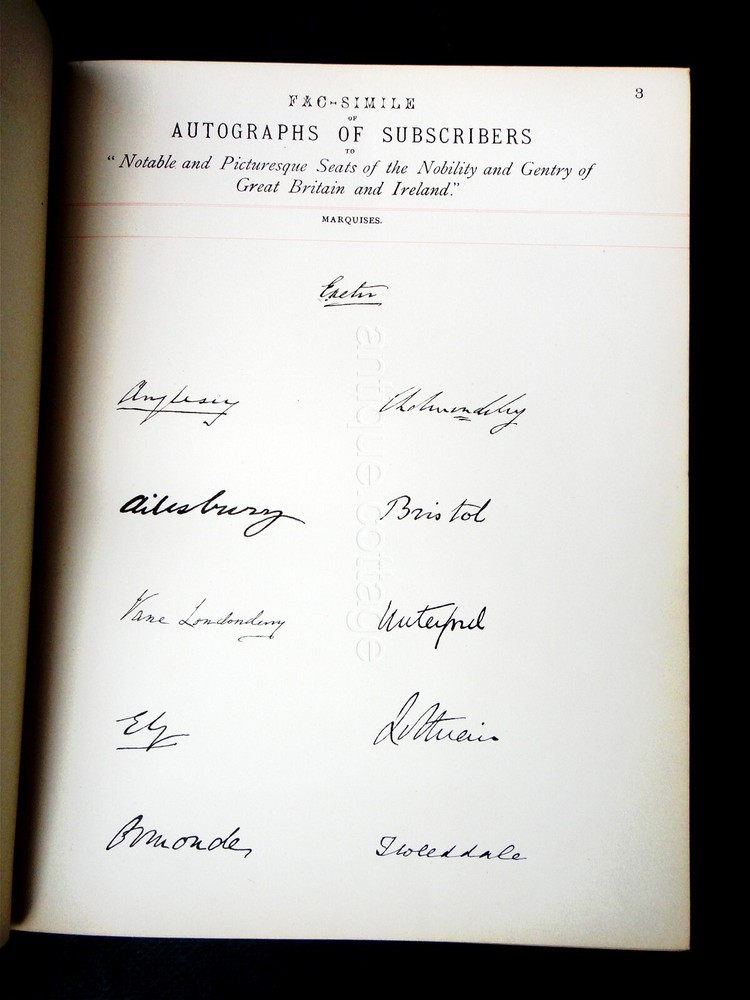 3
FAC-SIMILE
OF
AUTOGRAPHS OF SUBSCRIBERS
TO
"Notable and Picturesque Seats of the Nobility and Gentry of
Great Britain and Ireland."
MARQUISES.
Exeter
Anglesey
Cholmondeley
Ailesbury
Bristol
Vane Londonderry
Waterford
Ely
Lothian
Ormonde
Tweeddale
antique.cottage